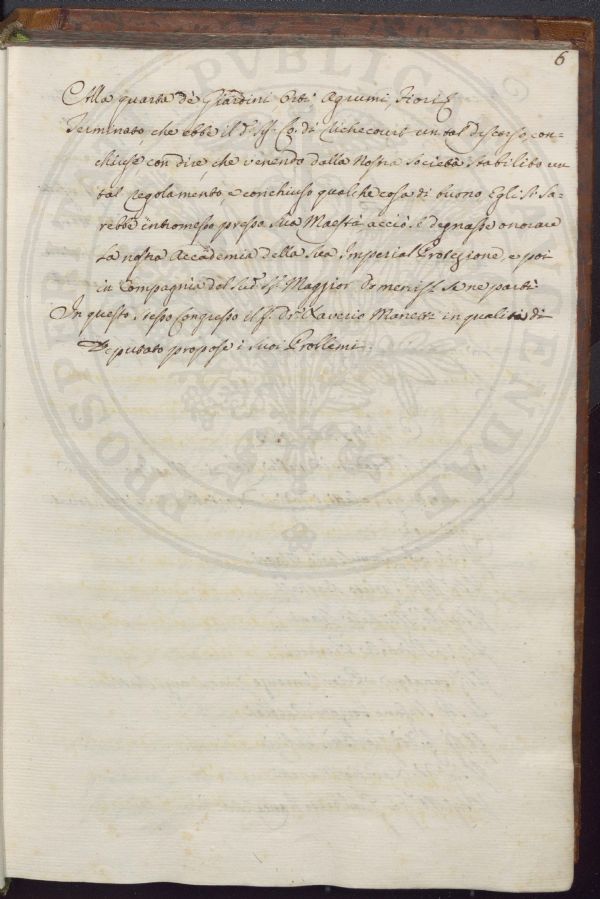 6
Alla quarta de' Giardini Orti Agrumi, Fiori
Terminato, che ebbe il d.º Sig. Co. di Richecourt un tal discorso, con-
chiuse con dire, che venendo dalla Nostra Società stabilito un
tal regolamento, e conchiuso qualche cosa di buono Egli si sa-
rebbe intromesso presso Sua Maestà acciò si degnasse onorare
la nostra Accademia della Sua Imperial Protezione, e poi
in Compagnia del Sud.º Sig. Maggior se ne partì
In questo stesso Congresso il Sig. Dr. Xaverio Manetti in qualità di
Deputato propose i suoi Problemi.
PROSPERITATI PUBLICAE AUGENDAE